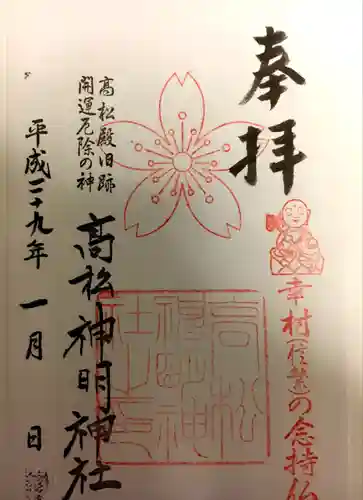 奉拝
幸村(信繁)の念持仏
高松殿旧跡
開運厄除の神
高松神明神社
高松神明神社之印
平成二十九年 一月 日